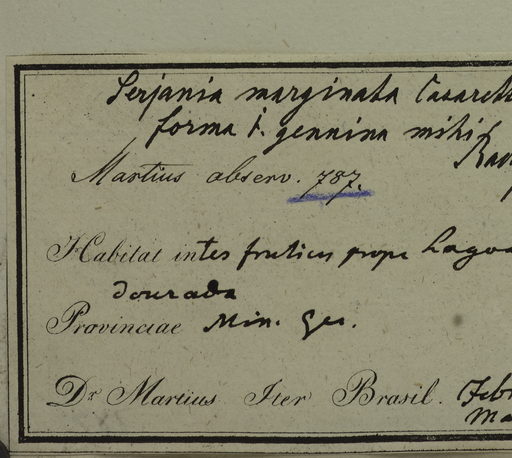 Serjania marginata Casarett
forma 1. genuina mihi
Ra
Martius observ. 787.
Habitat inter frutices prope Lagoa
dourada
Provinciae Min. Ger.
Dr Martius Iter Brasil. Febr
Ma